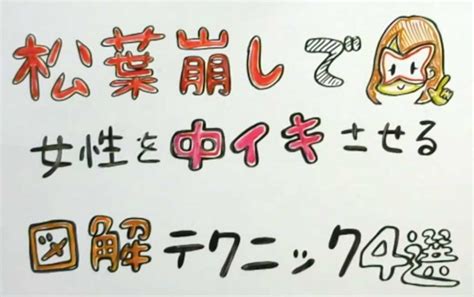 松葉崩しで
女性を中イキさせる
図解テクニック4選